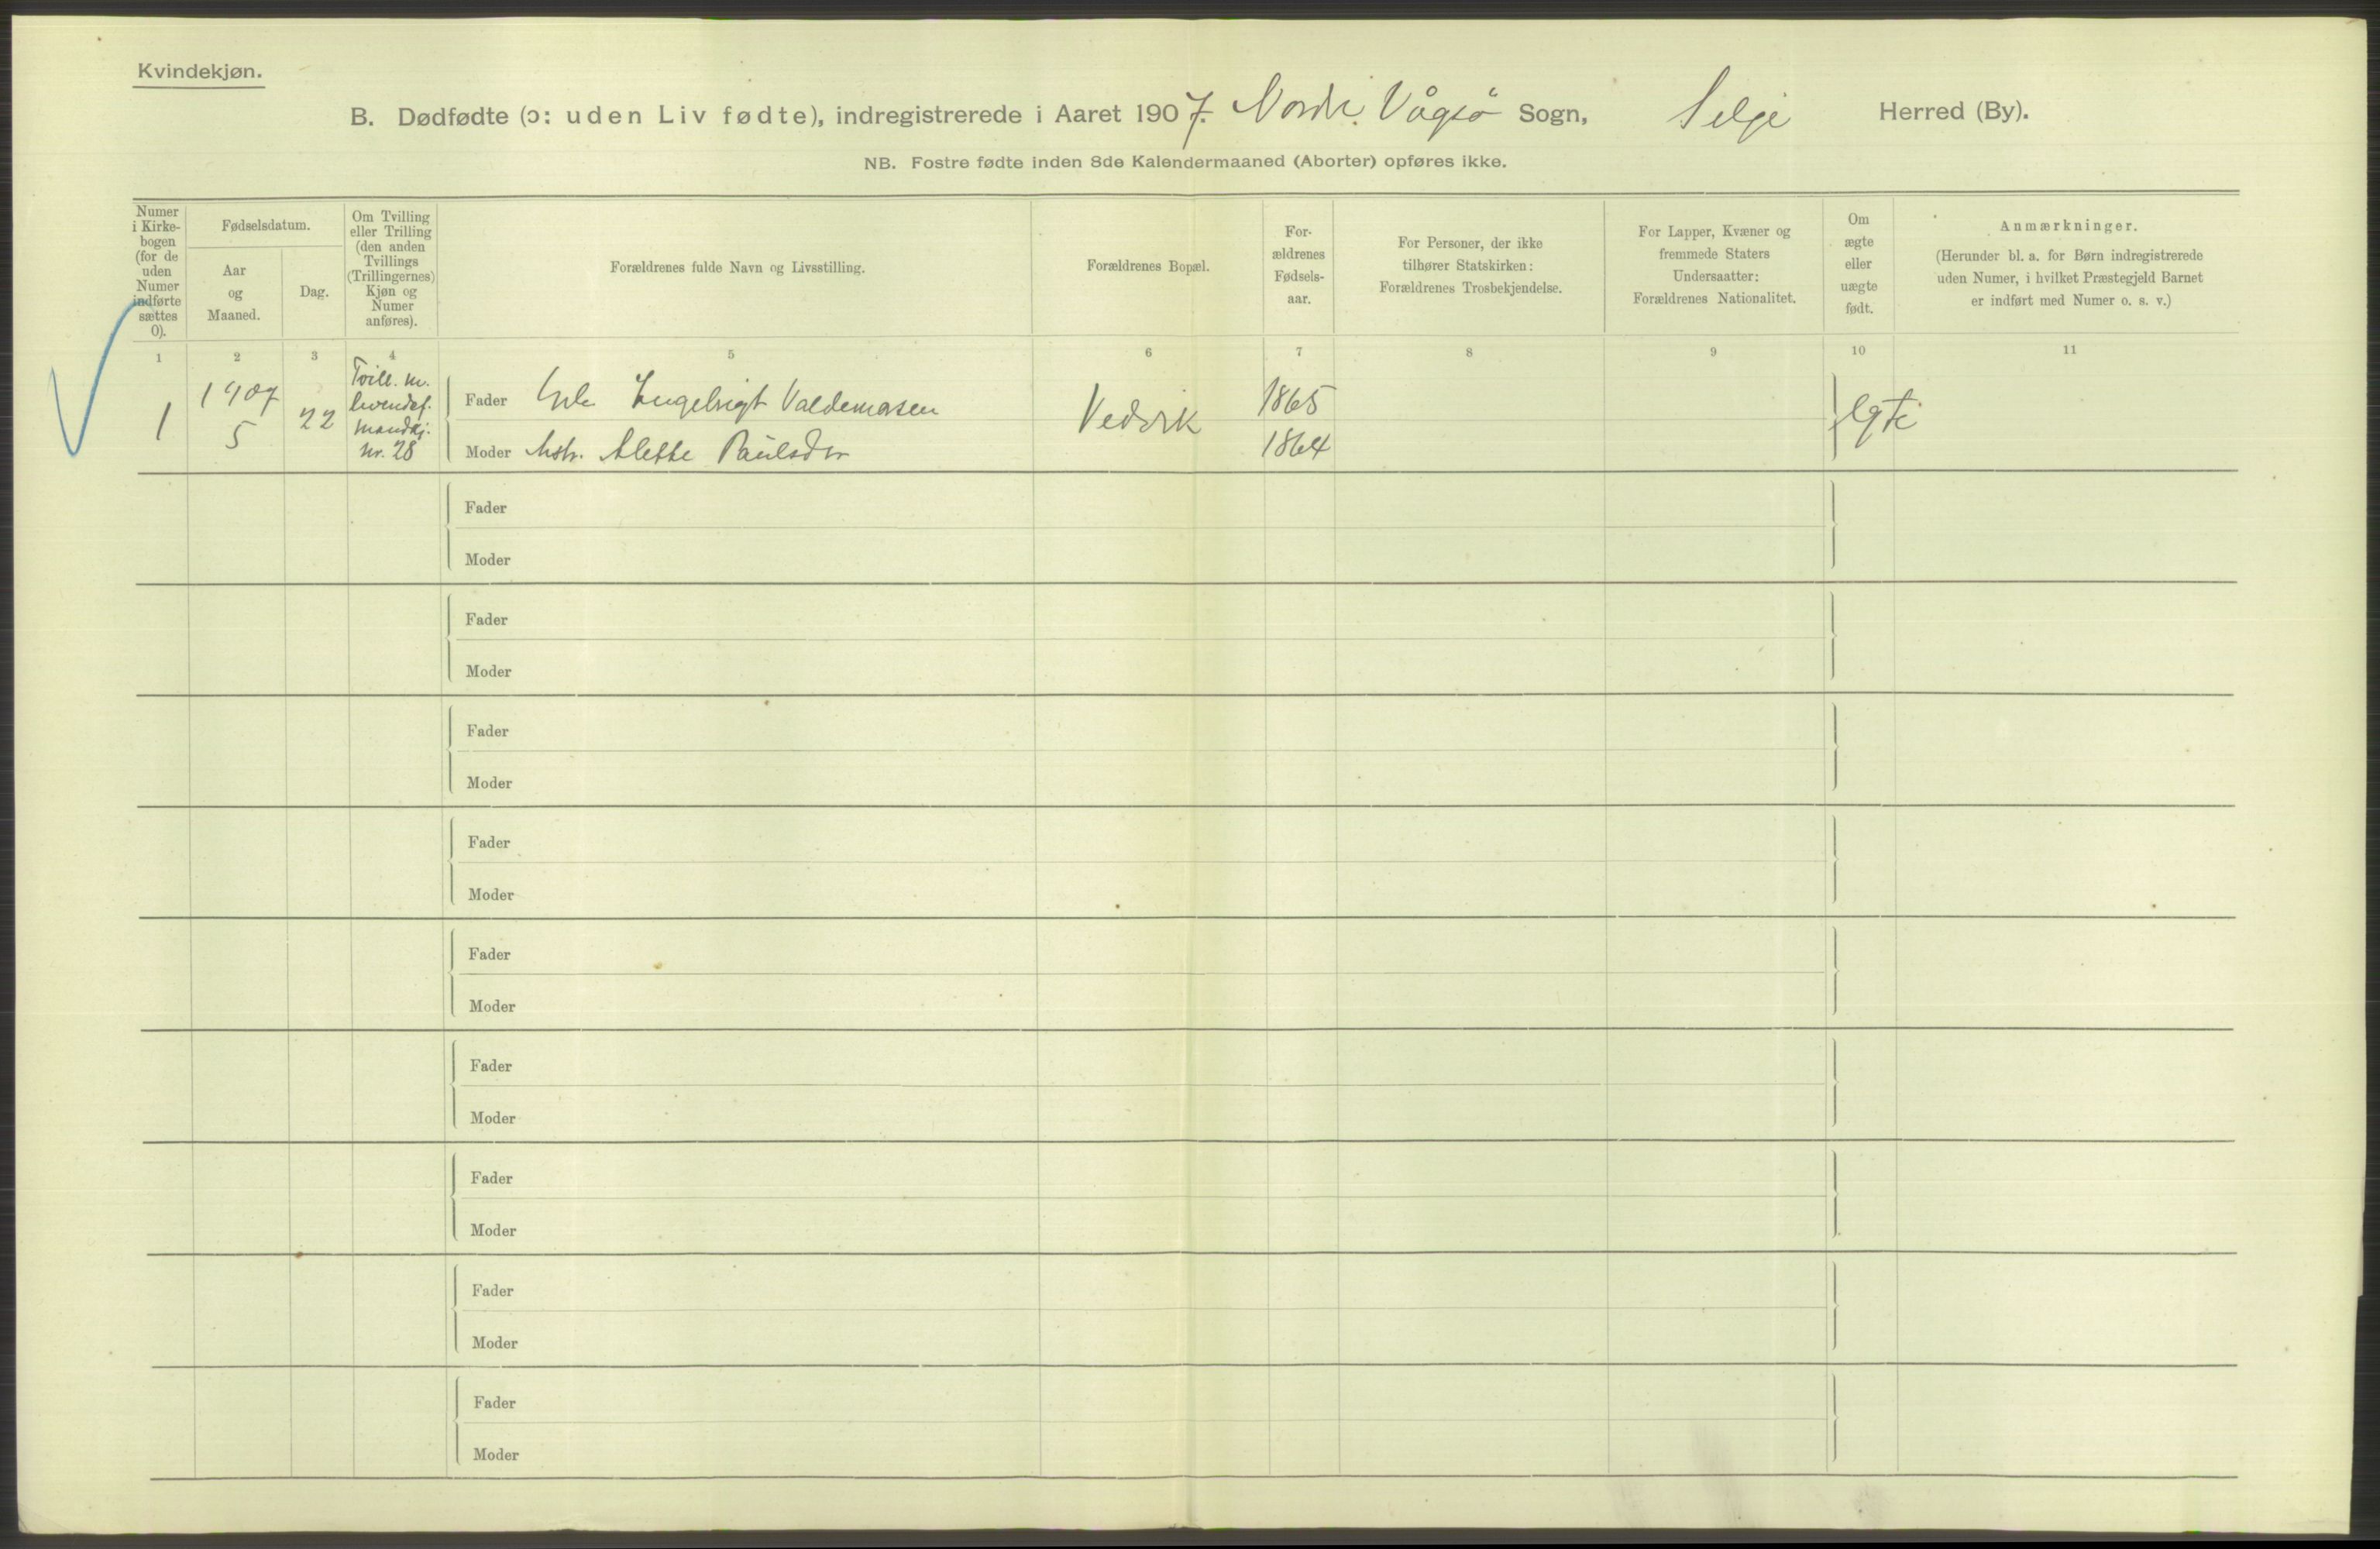 Kvindekjøn.
B. Dødfødte (ɔ: uden Liv fødte), indregistrerede i Aaret 1907. Nordr. Vågsö Sogn, Selje Herred (By).
NB. Fostre fødte inden 8de Kalendermaaned (Aborter) opføres ikke.
Numer
i Kirke-
bogen
(for de
uden
Numer
indførte
sættes
0).
Fødselsdatum.
Aar
og
Maaned.
Dag.
Om Tvilling
eller Trilling
(den anden
Tvillings
(Trillingernes)
Kjøn og
Numer
anføres).
Forældrenes fulde Navn og Livsstilling.
Forældrenes Bopæl.
For-
ældrenes
Fødsels-
aar.
For Personer, der ikke
tilhører Statskirken:
Forældrenes Trosbekjendelse.
For Lapper, Kvæner og
fremmede Staters
Undersaatter:
Forældrenes Nationalitet.
Om
ægte
eller
uægte
født.
Anmærkninger.
(Herunder bl. a. for Børn indregistrerede
uden Numer, i hvilket Præstegjeld Barnet
er indført med Numer o. s. v.)
1 2 3 4 5 6 7 8 9 10 11
1
1907
5
22
Tvill. m.
levendef.
mandkj.
nr. 28
Fader Engelbrigt Valdemarsen
Moder Alette Paulsdtr
Vedvik
1865
1864
Fader
Moder
Fader
Moder
Fader
Moder
Fader
Moder
Fader
Moder
Fader
Moder
Fader
Moder
Fader
Moder
Fader
Moder